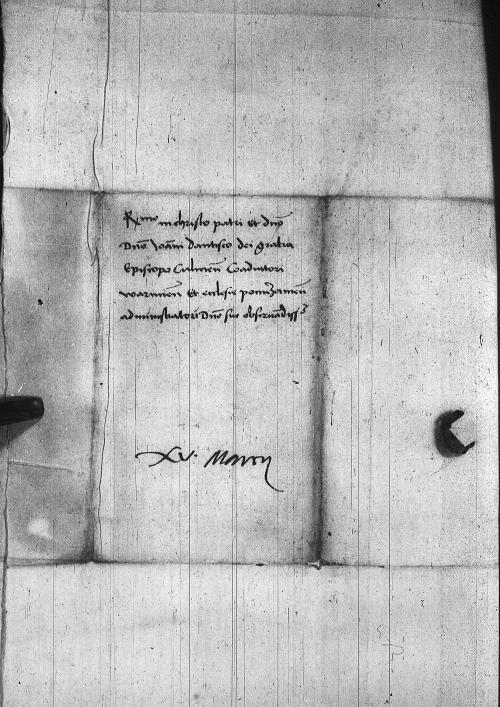 R<sup>mo</sup> in christo patri et dno
Dno Joani dantisco dei gratia
Episcopo Culmen Coadiutori
warmien et ecclesie pomezanien
administratori Dno suo obseruadiss<sup>o</sup>
XV. Marcij